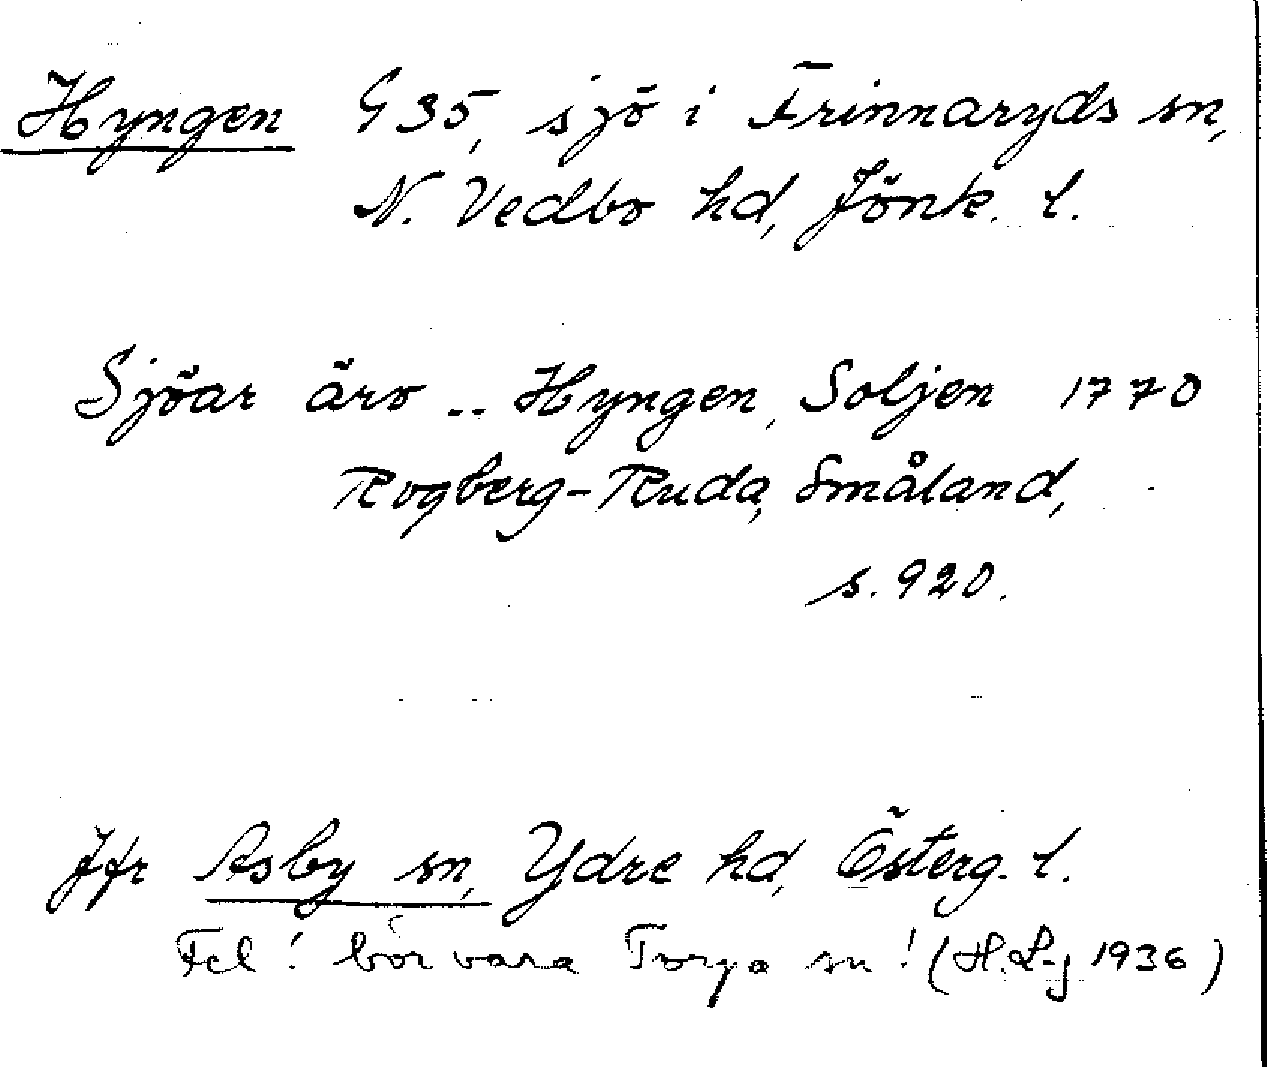 Hyngen G 35, sjö i Frinnaryds sn,
N. Vedbo hd, Jönk. l.
Sjöar äro .. Hyngen, Soljen 1770
Rogberg-Ruda, Småland,
s. 920.
Jfr Asby sn, Ydre hd, Österg. l.
Fel! bör vara Torpa sn! (H. L-j 1936)